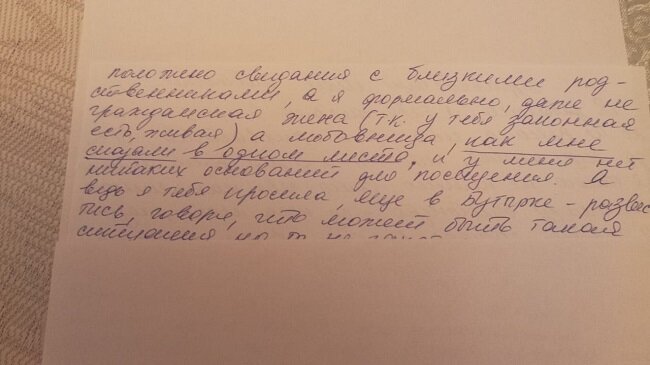 положено свидания с близкими род-
ственниками, а я формально, даже не
гражданская жена (т.к. у тебя законная
есть, живая) а любовница, как мне
сказали в одном месте, и у меня нет
никаких оснований для посещения. А
ведь я тебя просила, еще в Бутырке - развес
тись, говоря, что может быть такая
ситуация